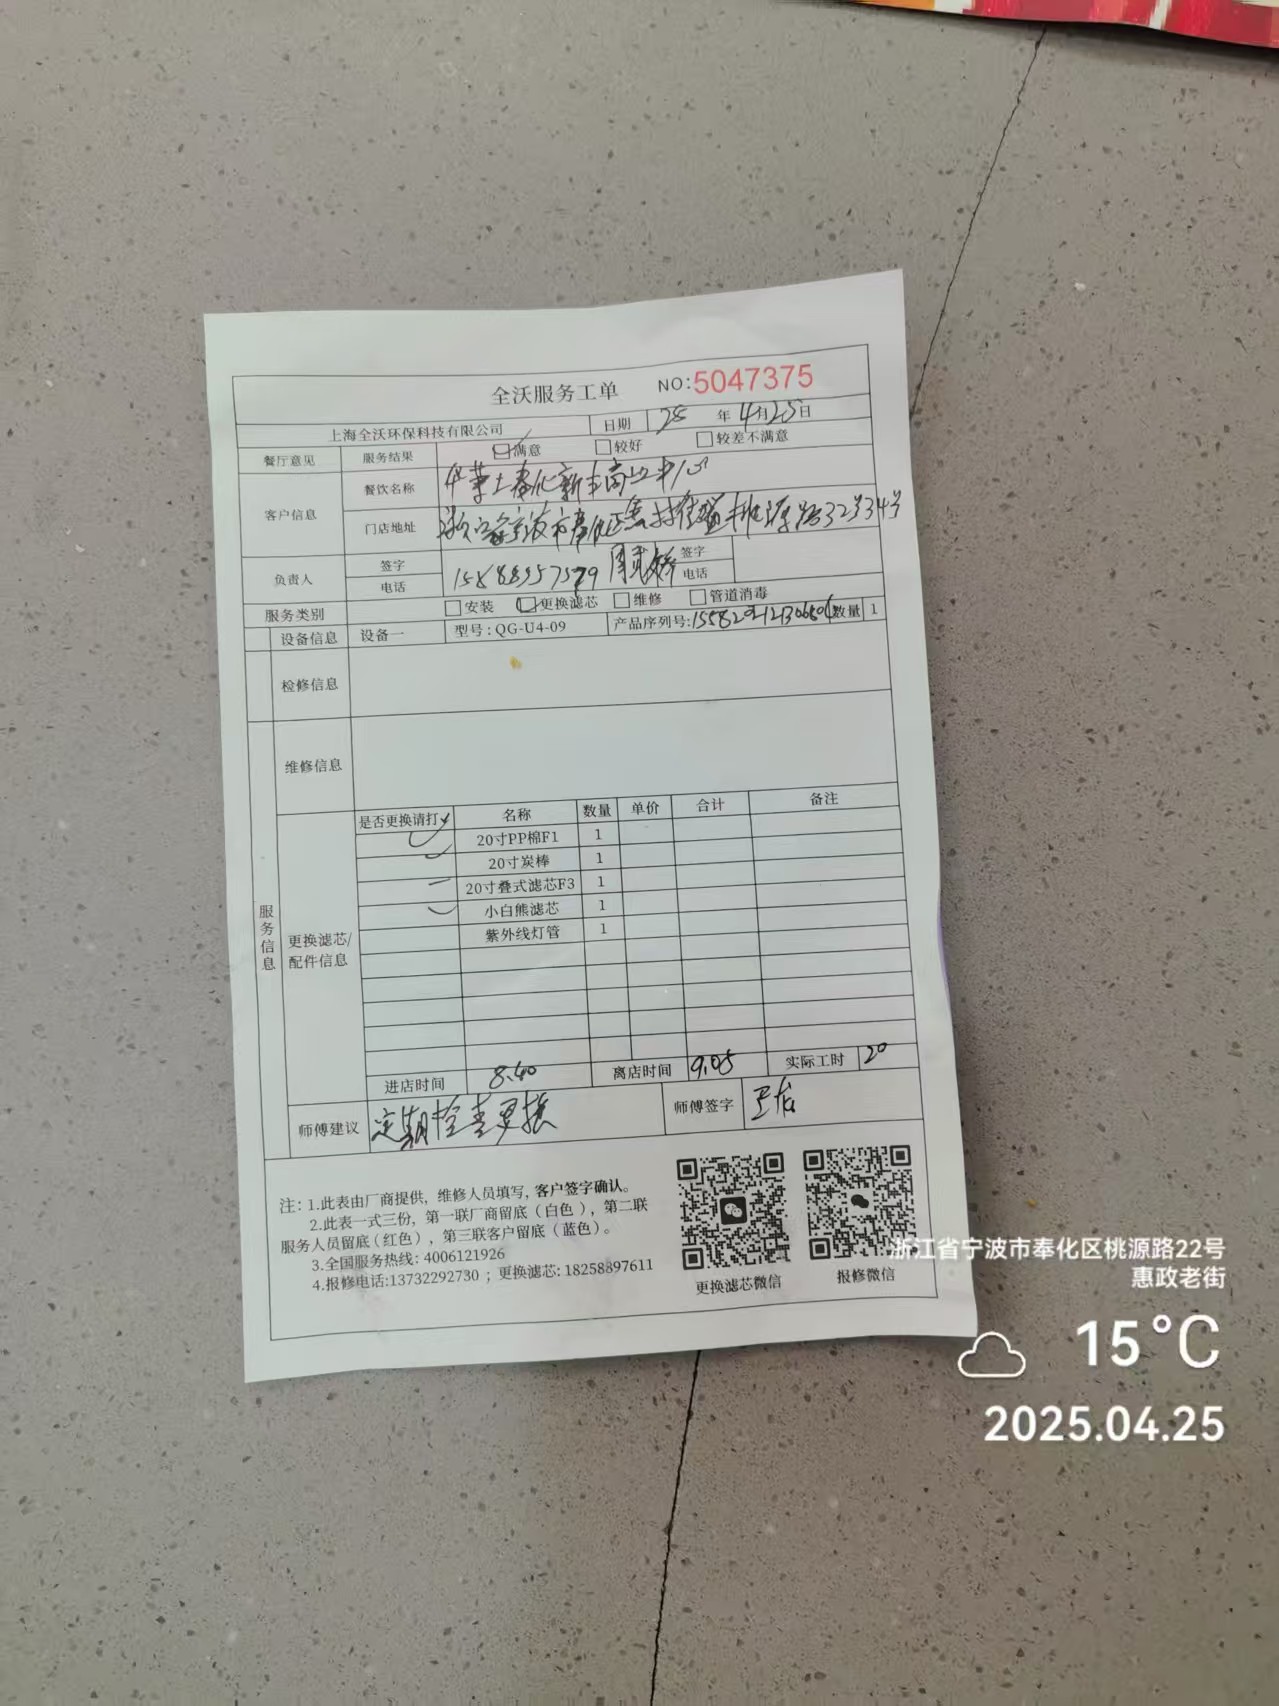 全沃服务工单 NO:5047375
上海全沃环保科技有限公司 日期 25年4月25日
餐厅意见 服务结果 满意 较好 较差不满意
客户信息 餐饮名称 华莱士奉化新丰商业中心
门店地址 浙江省宁波市奉化区 桃源路32号34号
负责人 签字 签字
电话 15888957579 电话
服务类别 安装 更换滤芯 维修 管道消毒
设备信息 设备一 型号:QG-U4-09 产品序列号: 数量 1
检修信息
维修信息
服务信息
更换滤芯/配件信息
是否更换请打✓ 名称 数量 单价 合计 备注
✓ 20寸PP棉F1 1
✓ 20寸炭棒 1
20寸叠式滤芯F3 1
✓ 小白熊滤芯 1
紫外线灯管 1
进店时间 8.40 离店时间 9.05 实际工时 20
师傅建议 定期检查更换 师傅签字
注: 1.此表由厂商提供, 维修人员填写, 客户签字确认。
2.此表一式三份, 第一联厂商留底(白色), 第二联
服务人员留底(红色), 第三联客户留底(蓝色)。
3.全国服务热线: 4006121926
4.报修电话:13732292730 ; 更换滤芯: 18258897611
更换滤芯微信 报修微信
浙江省宁波市奉化区桃源路22号
惠政老街
15°C
2025.04.25